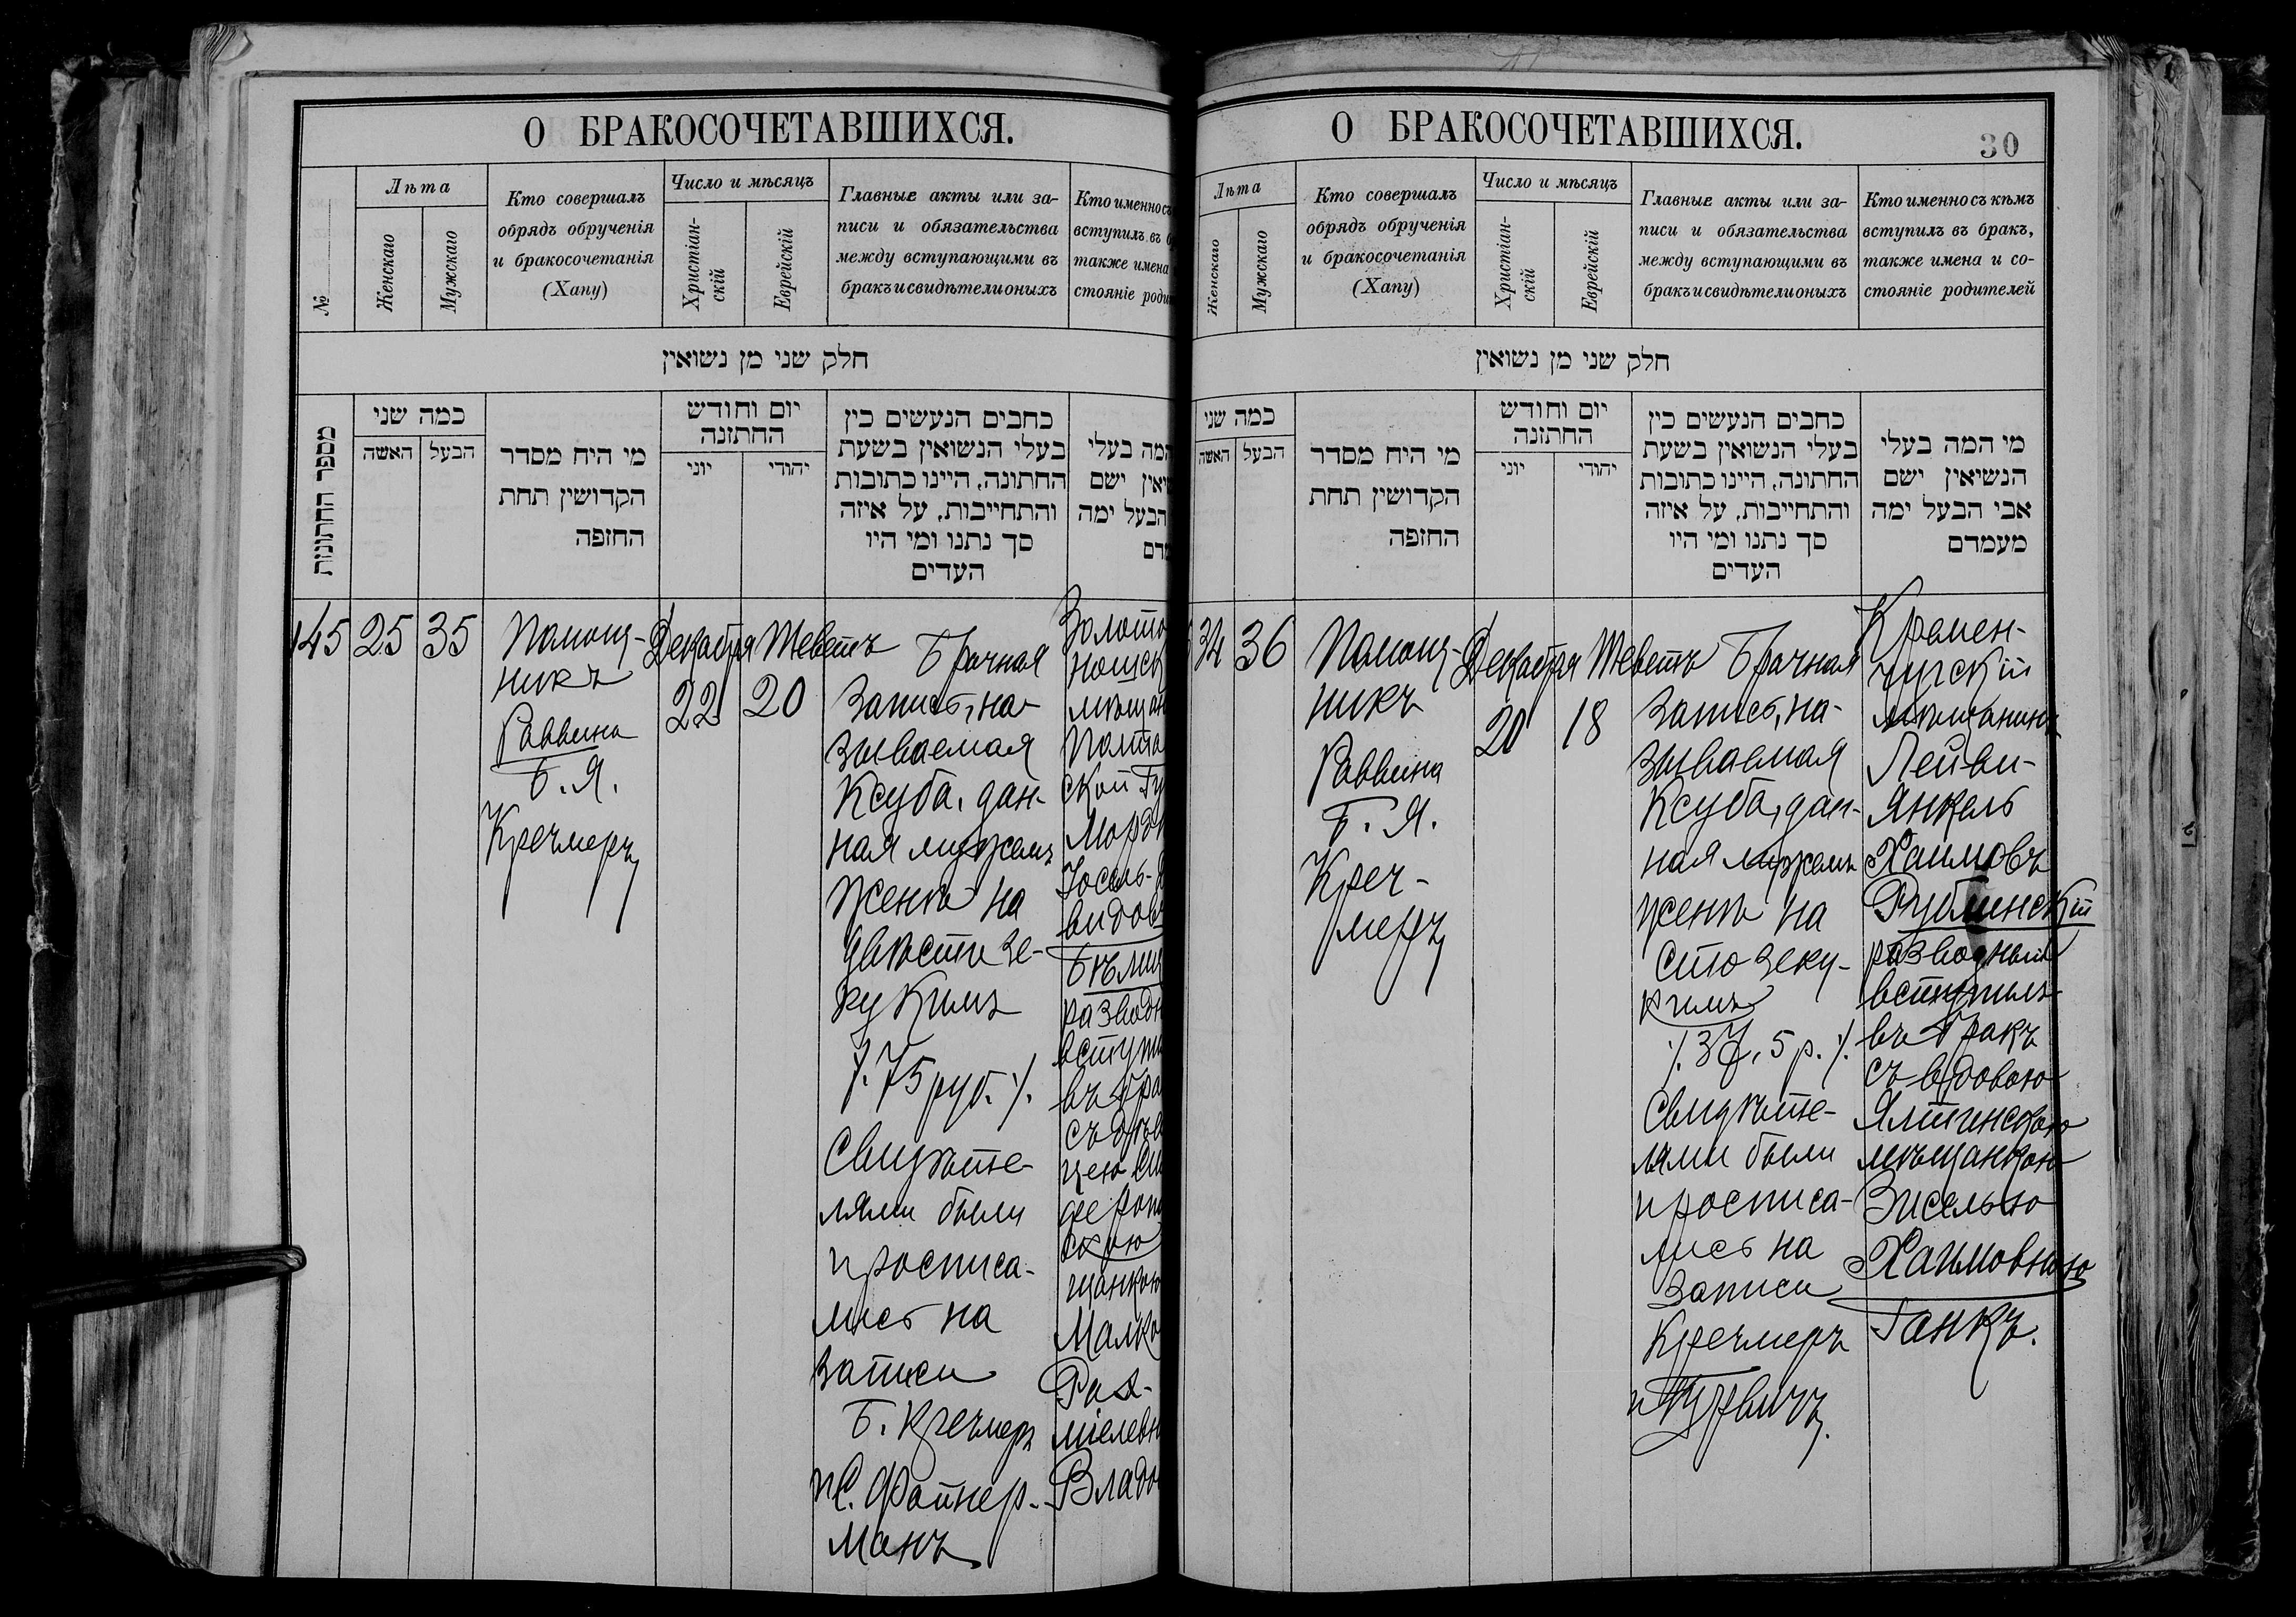 О БРАКОСОЧЕТАВШИХСЯ.
№
Лѣта
Женскаго
Мужскаго
Кто совершалъ
обрядъ обрученія
и бракосочетанія
(Хапу)
Число и мѣсяцъ
Христіан-
скій
Еврейскій
Главные акты или за-
писи и обязательства
между вступающими въ
бракъ и свидѣтели оныхъ
Кто именно съ
вступилъ въ
также имена
стояніе роди
חלק שני מן נשואין
מספר החתונות
כמה שני
האשה
הבעל
מי היה מסדר
הקדושין תחת
החופה
יום וחודש
החתונה
יוני
יהודי
כתבים הנעשים בין
בעלי הנשואין בשעת
החתונה, היינו כתובות
והתחייבות, על איזה
סך נתנו ומי היו
העדים
המה בעלי
שיאין ישם
הבעל ימה
מדם
145
25
35
Помощ-
никъ
Раввина
Б. Я.
Кречмеръ
Декабря
22
Теветъ
20
Брачная
запись, на-
зываемая
Ксуба, дан-
ная мужемъ
женѣ на
двѣсти зе-
кукимъ
/. 75 руб. /.
Свидѣте-
лями были
и росписа-
лись на
записи
Б. Кречмеръ
и С. Файнер-
манъ
Золото
ношск
мѣщан
Полта
ской Гу
Морд
Іосель-Д
видовъ
развод
вступи
въ бра
съ дѣви
цею Си
феропо
скою
щанкою
Малко
Рах-
міелевн
Владо
О БРАКОСОЧЕТАВШИХСЯ.
30
Лѣта
Женскаго
Мужскаго
Кто совершалъ
обрядъ обрученія
и бракосочетанія
(Хапу)
Число и мѣсяцъ
Христіан-
скій
Еврейскій
Главные акты или за-
писи и обязательства
между вступающими въ
бракъ и свидѣтели оныхъ
Кто именно съ кѣмъ
вступилъ въ бракъ,
также имена и со-
стояніе родителей
חלק שני מן נשואין
כמה שני
האשה
הבעל
מי היה מסדר
הקדושין תחת
החופה
יום וחודש
החתונה
יוני
יהודי
כתבים הנעשים בין
בעלי הנשואין בשעת
החתונה, היינו כתובות
והתחייבות, על איזה
סך נתנו ומי היו
העדים
מי המה בעלי
הנשיאין ישם
אבי הבעל ימה
מעמדם
34
36
Помощ-
никъ
Раввина
Б. Я.
Креч-
меръ
Декабря
20
Теветъ
18
Брачная
запись, на-
зываемая
Ксуба, дан-
ная мужемъ
женѣ на
сто зеку-
кимъ
/. 37,5 р. /.
Свидѣте-
лями были
и росписа-
лись на
записи
Кречмеръ
и Гурвичъ.
Кремен-
чугскій
мѣщанинъ
Лейви-
Янкель
Хаимовъ
Рублинскій
разводный
вступилъ
въ бракъ
съ вдовою
Ялтинскою
мѣщанкою
Зиселью
Хаимовною
Ганкъ.